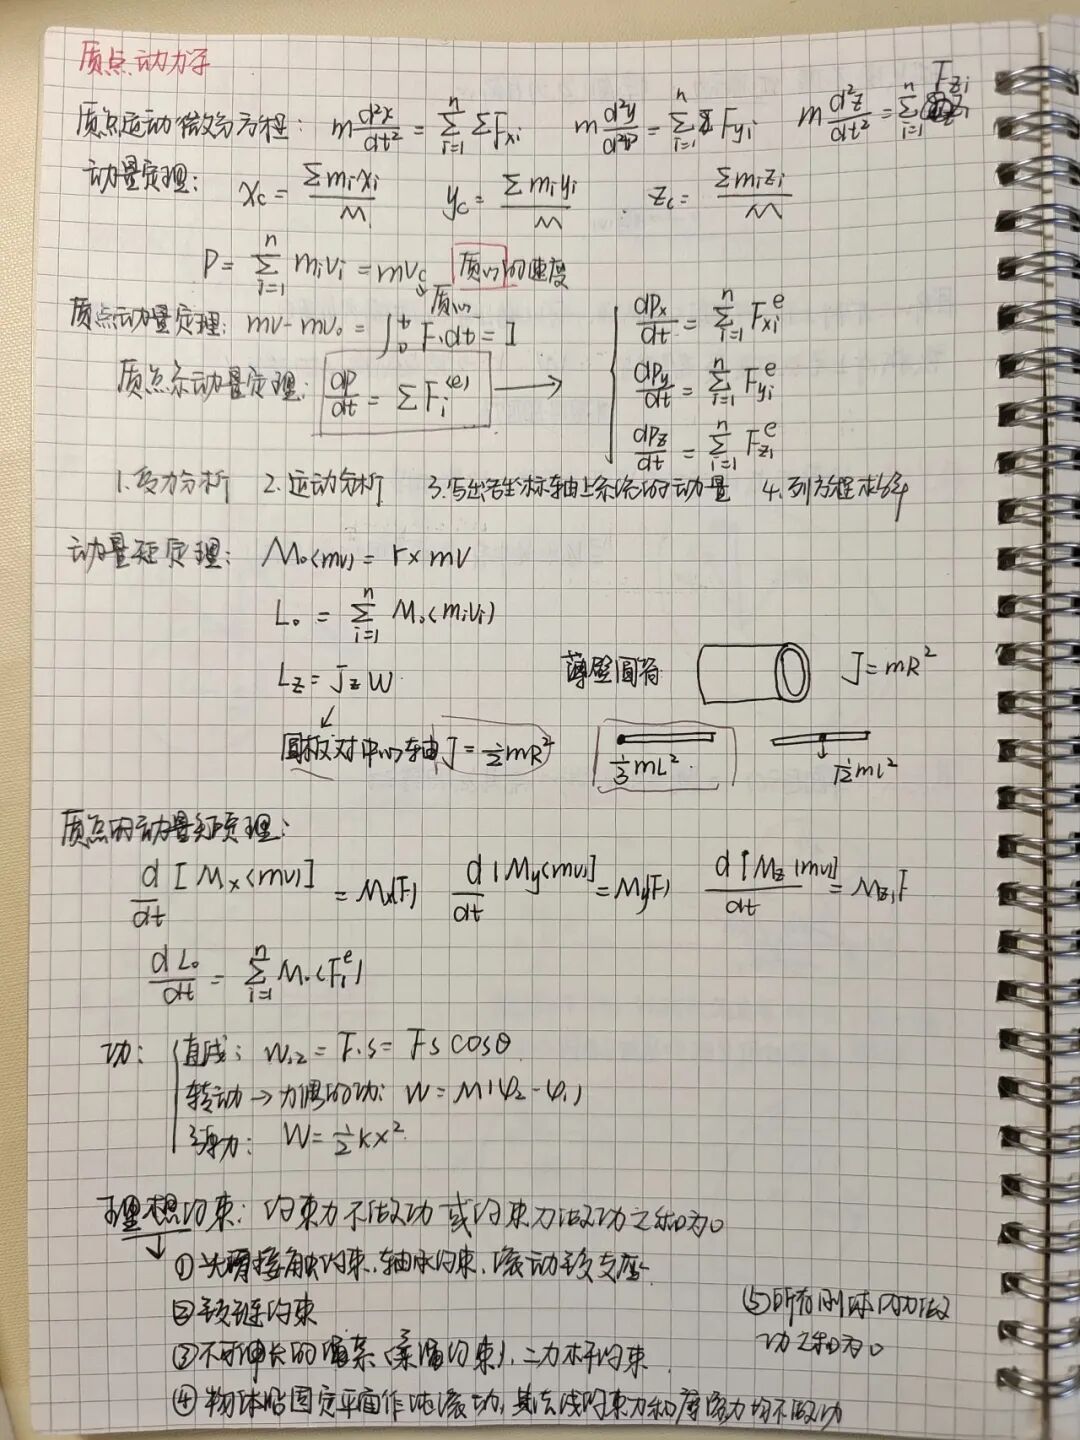 质点动力学
质点运动微分方程: m d²x/dt² = Σ(i=1→n) ΣFxi   m d²y/d²t² = Σ(i=1→n) Fyi   m d²z/dt² = Σ(i=1→n) Fzi
动量定理: xc = Σmixi/M   yc = Σmiyi/M   zc = Σmizi/M
P = Σ(i=1→n) mivi = mvc 质心的速度
质心
质点动量定理: mv-mv₀ = ∫₀ᵗ F·dt = I
质点系动量定理: dp/dt = ΣFi⁽ᵉ⁾ →
dPx/dt = Σ(i=1→n) Fxiᵉ
dPy/dt = Σ(i=1→n) Fyiᵉ
dPz/dt = Σ(i=1→n) Fziᵉ
1.受力分析 2.运动分析 3.写出各坐标轴上系统的动量 4.列方程求解
动量矩定理: Mo(mv) = r×mv
Lo = Σ(i=1→n) Mo(mivi)
Lz = Jzω
薄壁圆筒 J=mR²
圆板对中心轴 J=½mR²   ⅓mL²   1/12 ml²
质点的动量矩定理:
d[Mx(mv)]/dt = Mx(F)   d[My(mv)]/dt = My(F)   d[Mz(mv)]/dt = Mz(F
dLo/dt = Σ(i=1→n) Mo(Fiᵉ)
功: 直线: W12 = F·s = Fscosθ
转动→力偶的功: W=M(φ₂-φ₁)
弹力: W=½kx²
理想约束: 约束力不做功或约束力做功之和为0
①光滑接触约束、轴承约束、滚动铰支座
②铰链约束
③不可伸长的绳索(柔绳约束)、二力杆约束
④物体沿固定平面作纯滚动,其法线约束力和摩擦力均不做功
(5)所有刚体内力做
功之和为0